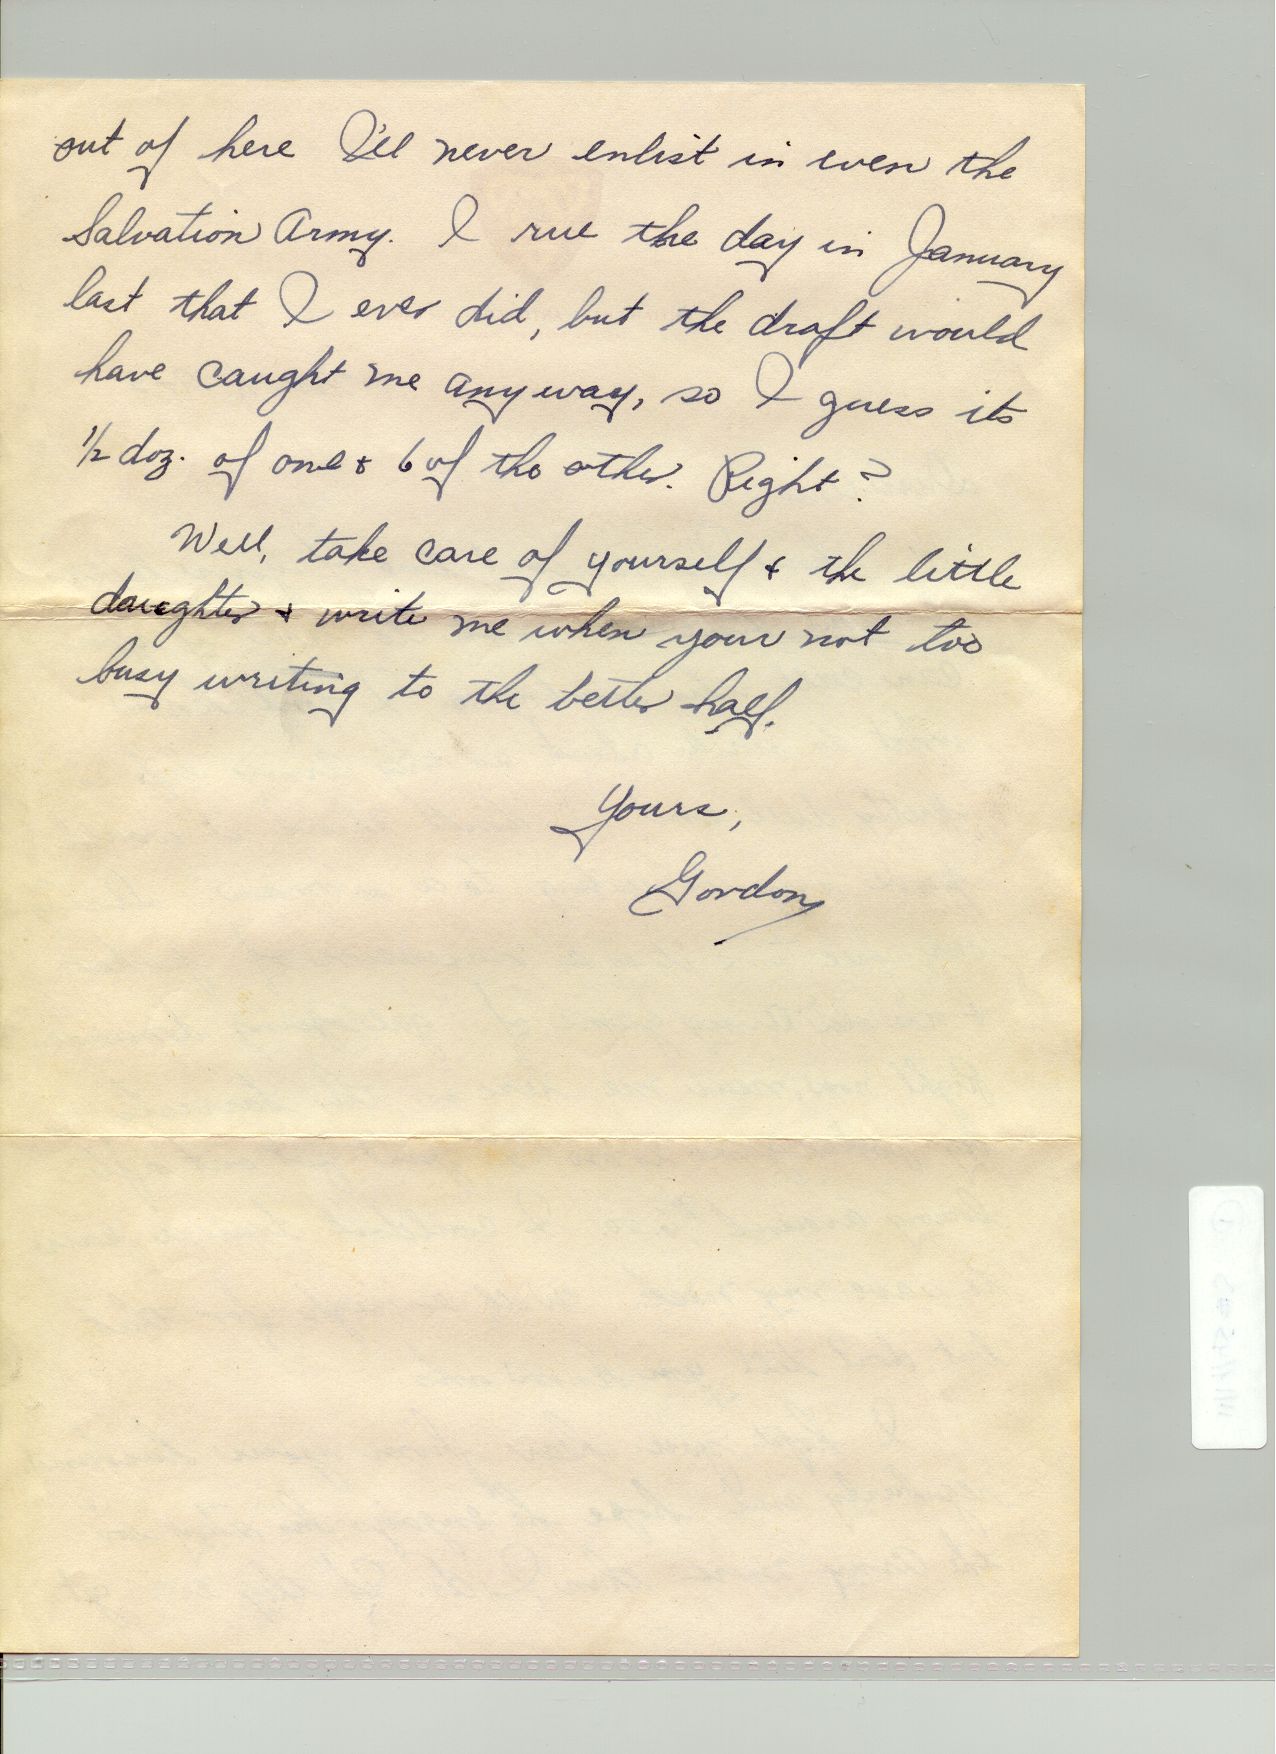 out of here I'll never enlist in even the
Salvation Army. I rue the day in January
last that I ever did, but the draft would
have caught me anyway, so I guess its
1/2 doz. of one & 6 of the other. Right?
Well, take care of yourself & the little
daughter & write me when your not too
busy writing to the better half.
Yours,
Gordon